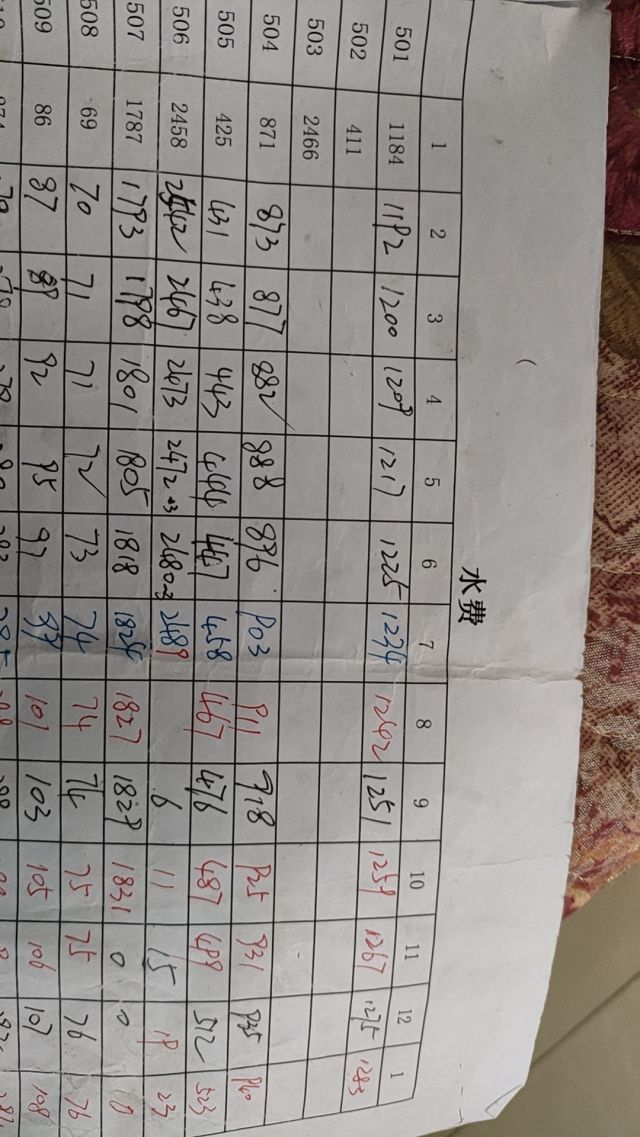 水费
1 2 3 4 5 6 7 8 9 10 11 12 1
501 1184 1192 1200 1209 1217 1225 1234 1242 1251 1259 1267 1275 1283
502 411
503 2466
504 871 873 877 882 888 896 903 911 918 925 931 935 940
505 425 431 438 443 444 447 458 467 476 487 499 512 523
506 2458 2467 2473 2472+3 2480-3 2489 6 11 15 19 23
507 1787 1793 1798 1801 1805 1818 1824 1827 1829 1831 0 0
508 69 70 71 71 72 73 74 74 74 75 75 76 76
509 86 87 89 92 95 97 99 101 103 105 106 107 108